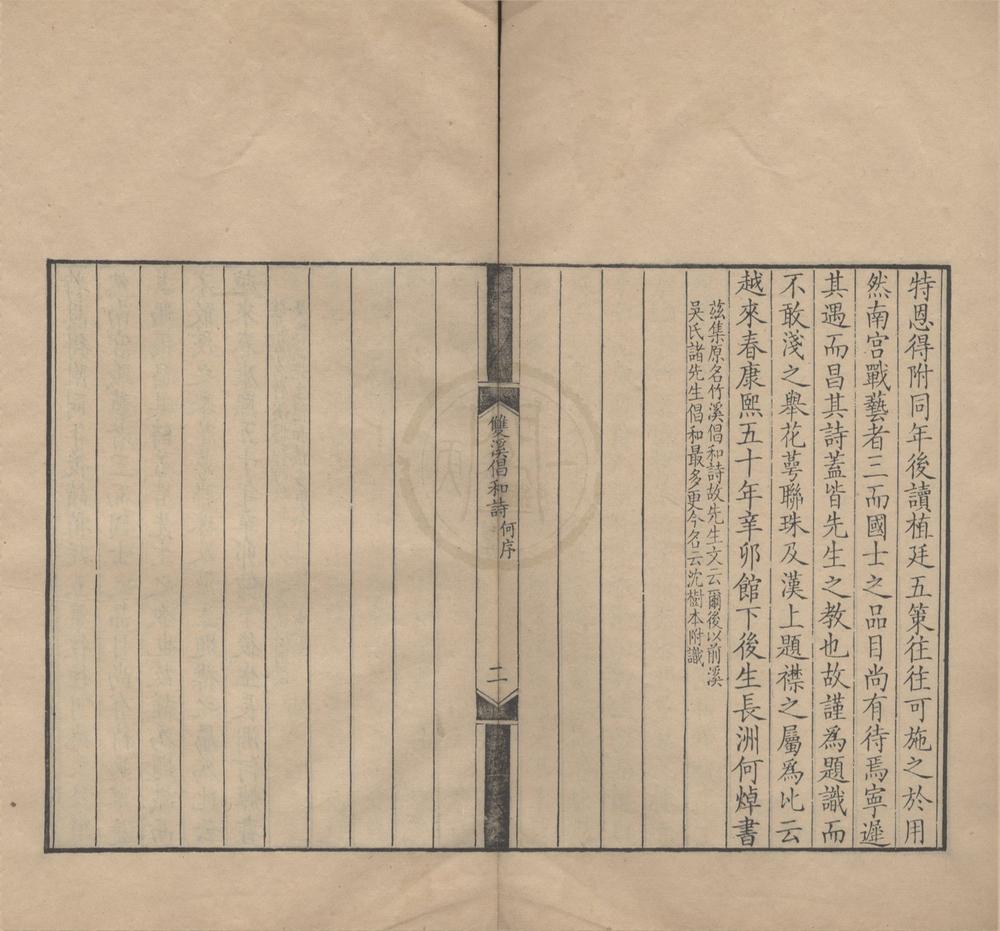 特恩得附同年後讀植廷五策往往可施之於用
然南宮戰藝者三而國士之品目尚有待焉寧遲
其遇而昌其詩蓋皆先生之教也故謹為題識而
不敢淺之舉花萼聯珠及漢上題襟之屬為比云
越來春康熙五十年辛卯館下後生長洲何焯書
茲集原名竹溪倡和詩故先生文云爾後以前溪
吳氏諸先生倡和最多更今名云沈樹本附識
雙溪倡和詩 何序
二